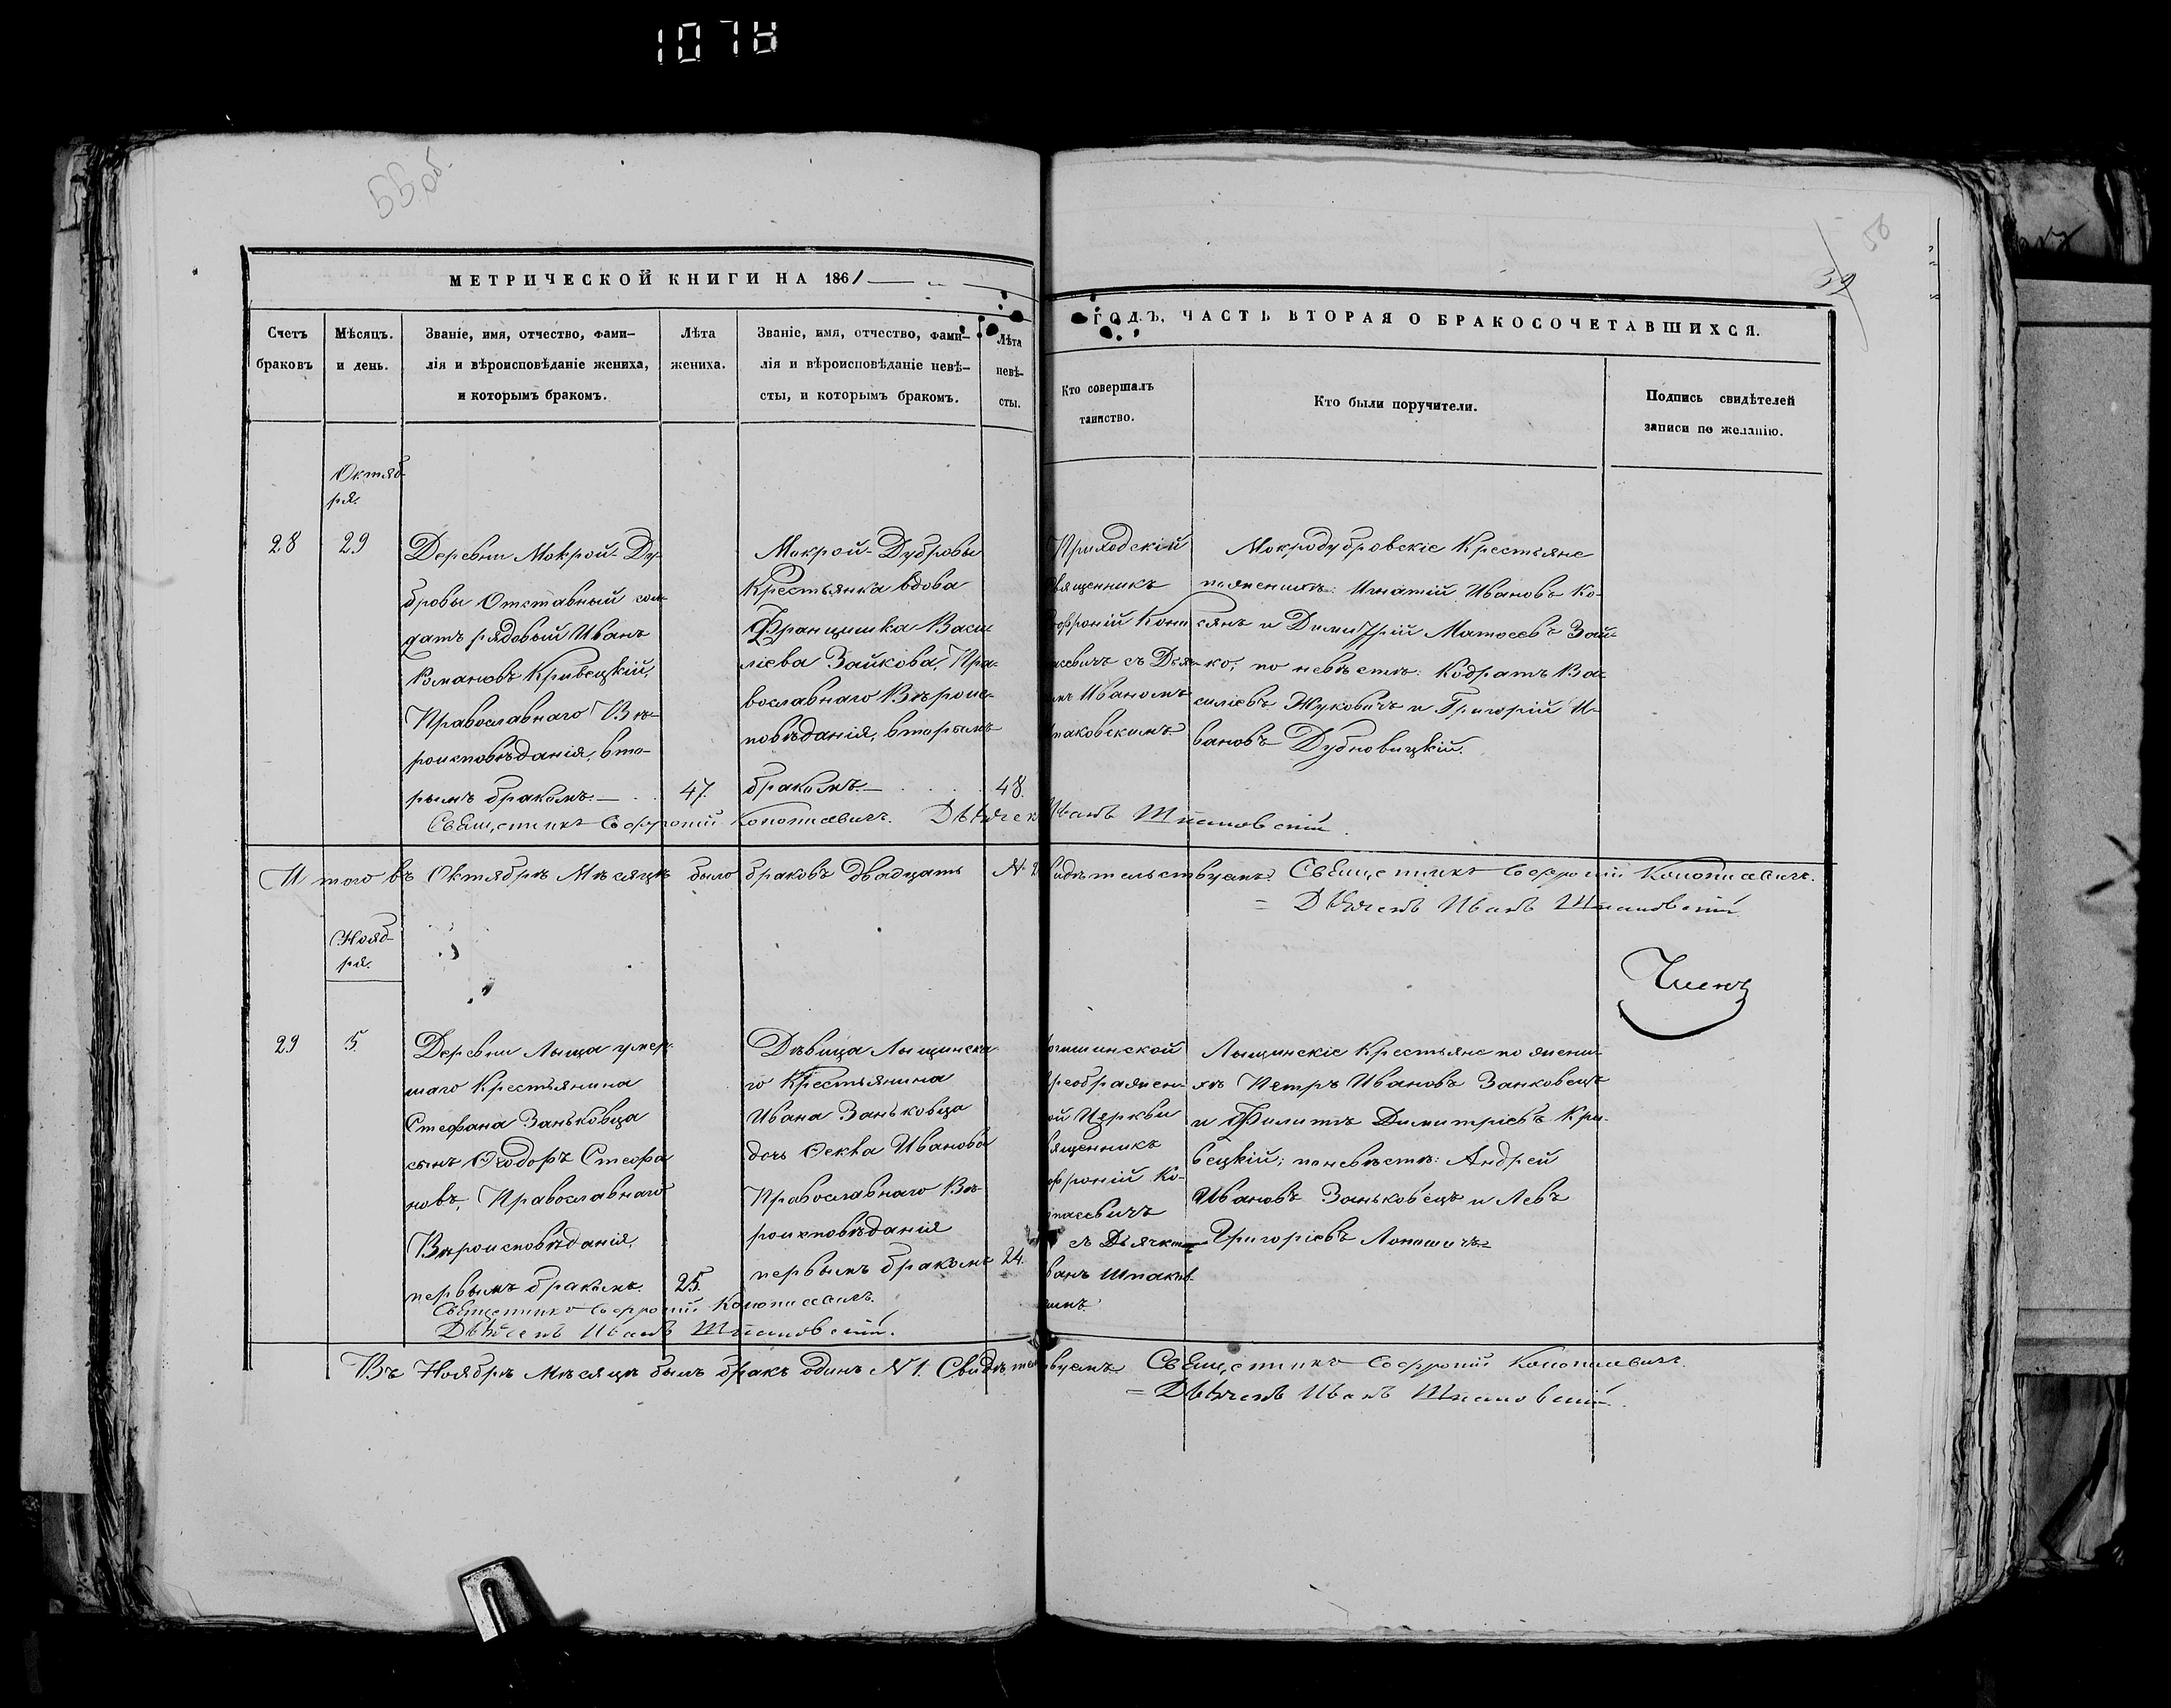 1078
55 об.
56
39
МЕТРИЧЕСКОЙ КНИГИ НА 1861
ГОДЪ, ЧАСТЬ ВТОРАЯ О БРАКОСОЧЕТАВШИХСЯ.
Счетъ
браковъ
Мѣсяцъ.
и день.
Званіе, имя, отчество, фами–
лія и вѣроисповѣданіе жениха,
и которымъ бракомъ.
Лѣта
жениха.
Званіе, имя, отчество, фами–
лія и вѣроисповѣданіе невѣ–
сты, и которымъ бракомъ.
Лѣта
невѣ-
сты.
Кто совершалъ
таинство.
Кто были поручители.
Подпись свидѣтелей
записи по желанію.
Октяб-
ря.
28
29
Деревни Мокрой-Ду-
бровы Отставный сол-
датъ рядовый Иванъ
Романовъ Кривецкій,
Православнаго Вѣ-
роисповѣданія, вто-
рымъ бракомъ.—
47.
Мокрой-Дубровы
Крестьянка вдова
Францишка Васи-
ліева Зайкова, Пра-
вославнаго Вѣроис-
повѣданія, вторымъ
бракомъ.—
48.
Приходскій
вященникъ
офроній Коно
асевичъ съ Дьяч-
мъ Иваномъ
паковскимъ
Мокродубровскіе Крестьяне
по женихѣ: Игнатій Ивановъ Ко-
сянъ и Димитрій Матөеевъ Зай-
ко; по невѣстѣ: Кодратъ Ва-
силіевъ Жуковичъ и Григорій И-
вановъ Дубновицкій.
Священникъ Софроній Конопасевичъ. Дьячек Иванъ Шпаковскій.
Итого въ Октябрѣ Мѣсяцѣ было браковъ двадцать № 2 видѣтельствуемъ: Священникъ Софроній Конопасевичъ.
= Дьячекъ Иванъ Шпаковскій
Нояб-
ря.
Членъ
29
5.
Деревни Лыща умер-
шаго Крестьянина
Стефана Заньковца
сынъ Өеодоръ Стефа
новъ, Православнаго
Вѣроисповѣданія,
первымъ бракомъ.
25.
Дѣвица Лыщинска
го Крестьянина
Ивана Заньковца
дочь Өекла Иванова
Православнаго Вѣ-
роисповѣданія
первымъ бракомъ
24.
реображен-
ой Церкви
вященникъ
офроній Ко-
пасевичъ
съ Дьячком
ванъ Шпаков-
Лыщинскіе Крестьяне по жени-
хѣ Петръ Ивановъ Занковецъ
и Филиппъ Димитріевъ Кри-
вецкій; по невѣстѣ: Андрей
Ивановъ Заньковецъ и Левъ
Григоріевъ
Священникъ Софроній Конопасевичъ.
Дьячекъ Иванъ Шпаковскій.
Въ Ноябрѣ Мѣсяцѣ былъ бракъ одинъ № 1. Свидѣтельствуемъ Священникъ Софроній Конопасевичъ.
= Дьячекъ Иванъ Шпаковскій.